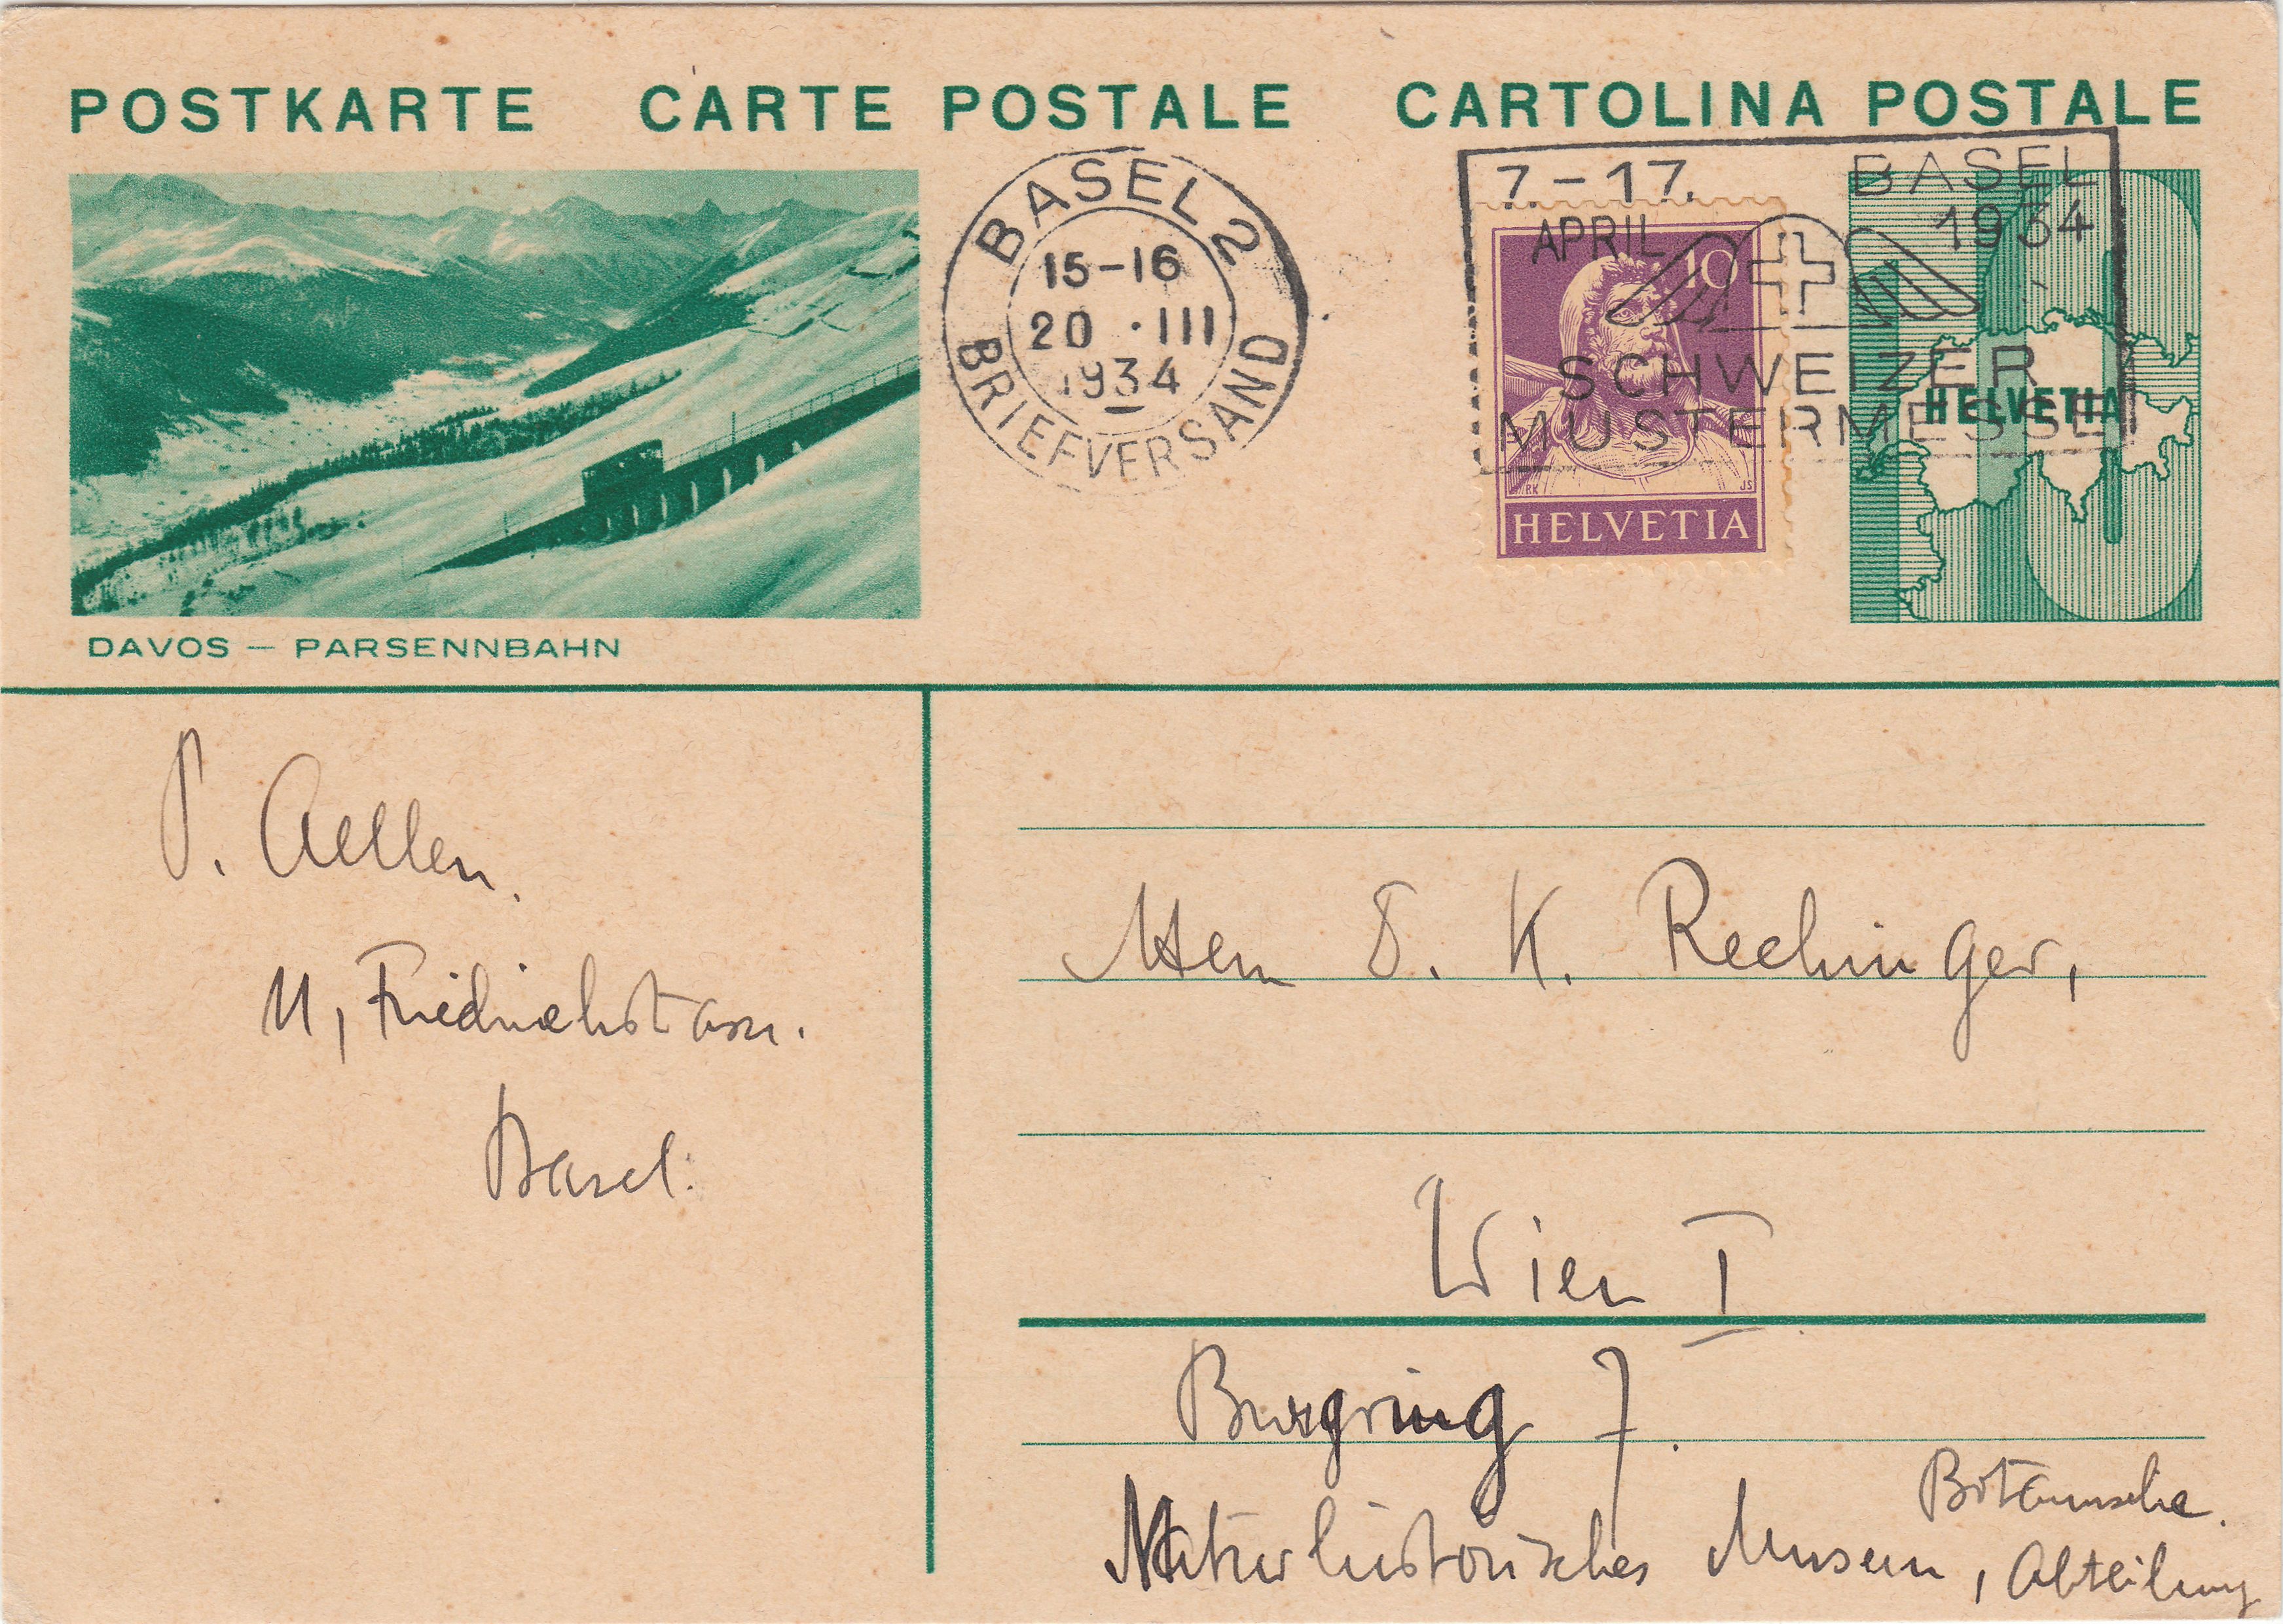 POSTKARTE CARTE POSTALE CARTOLINA POSTALE
BASEL 2
15-16
20 ·III
1934
BRIEFVERSAND
7.-17.
APRIL
BASEL
1934
SCHWEIZER
MUSTERMESSE
10
RK JS
HELVETIA
HELVETIA
DAVOS — PARSENNBAHN
P. Aellen.
11, Friedrichstrasse.
Basel.
Herrn D. K. Rechinger,
Wien I
Burgring 7.
Naturhistorisches Museum, Botanische
Abteilung